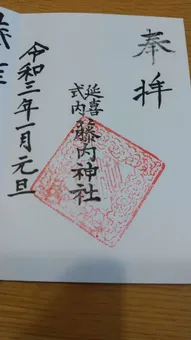 奉拝
延喜式内
藤内神社
令和三年一月元旦